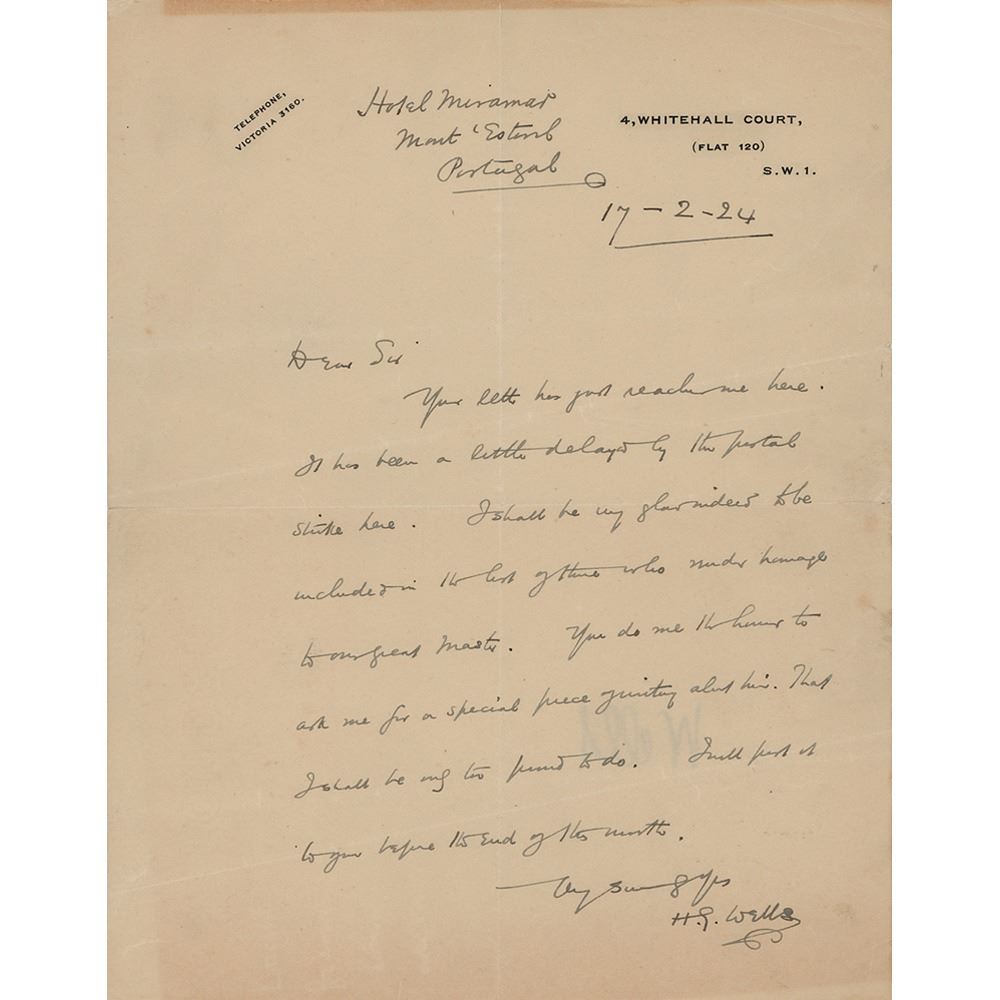 TELEPHONE,
VICTORIA 3160.
Hotel Miramar
Mont 'Estoril
Portugal
4, WHITEHALL COURT,
(FLAT 120)
S.W.1.
17-2-24
Dear Sir
Your letter has just reached me here.
It has been a little delayed by the postal
strike here. I shall be very glad indeed to be
included in the list of those who render homage
to our great Master. You do me the honour to
ask me for a special piece of writing about him. That
I shall be only too proud to do. I will post it
to you before the end of the month.
Very sincerely yours
H.G. Wells